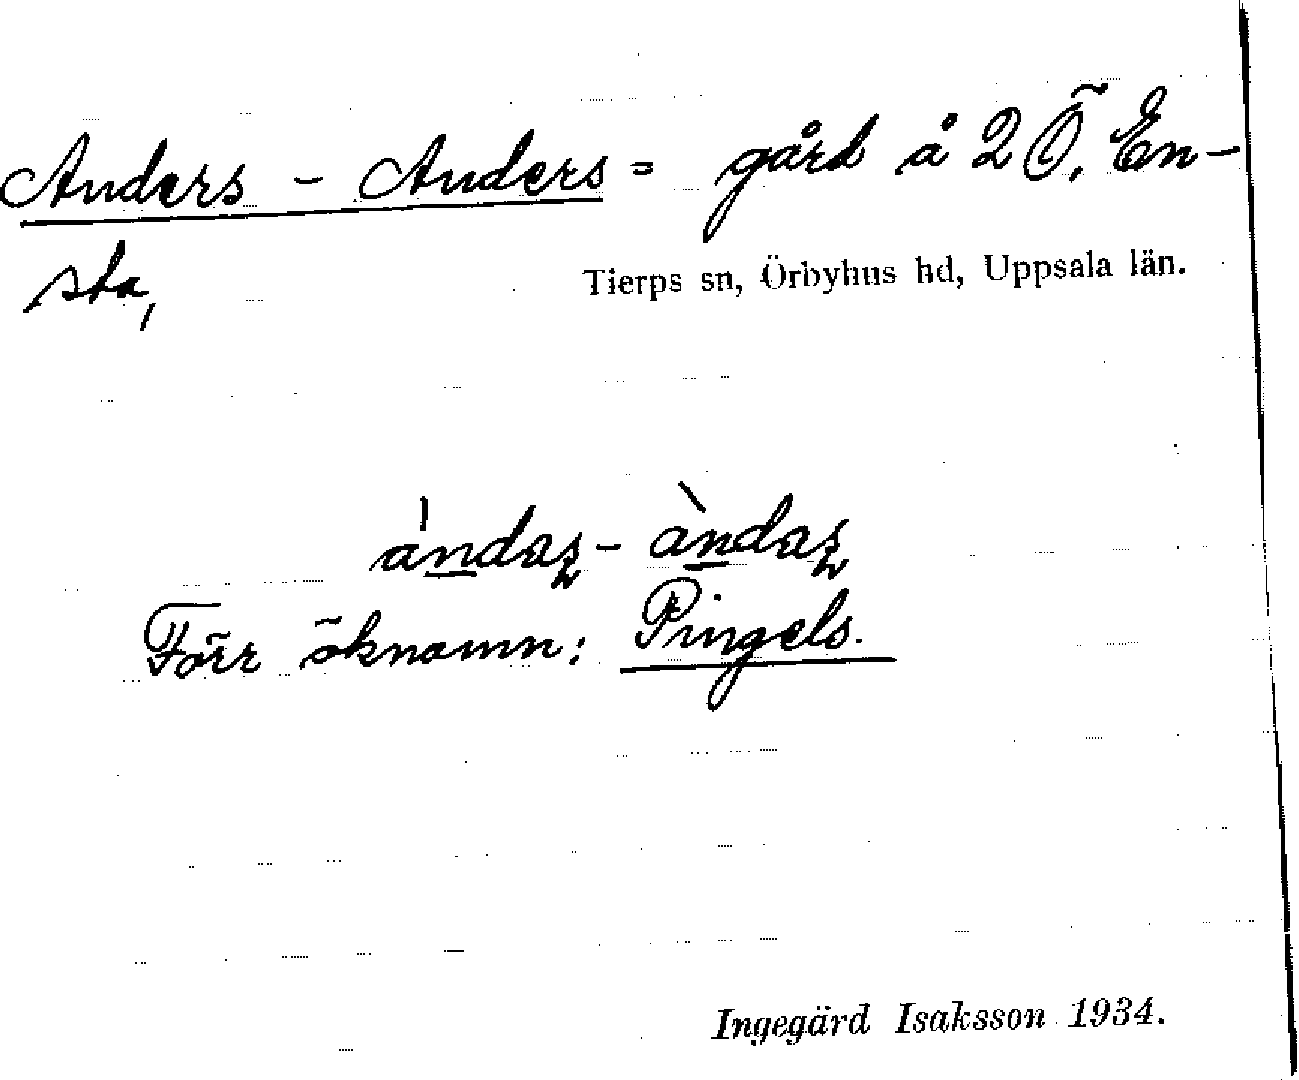 Anders - Anders = gård å 2 Ö. En-
sta,
Tierps sn, Örbyhus hd, Uppsala län.
ándaʂ - àndaʂ
Förr öknamn: Pingels.
Ingegärd Isaksson 1934.